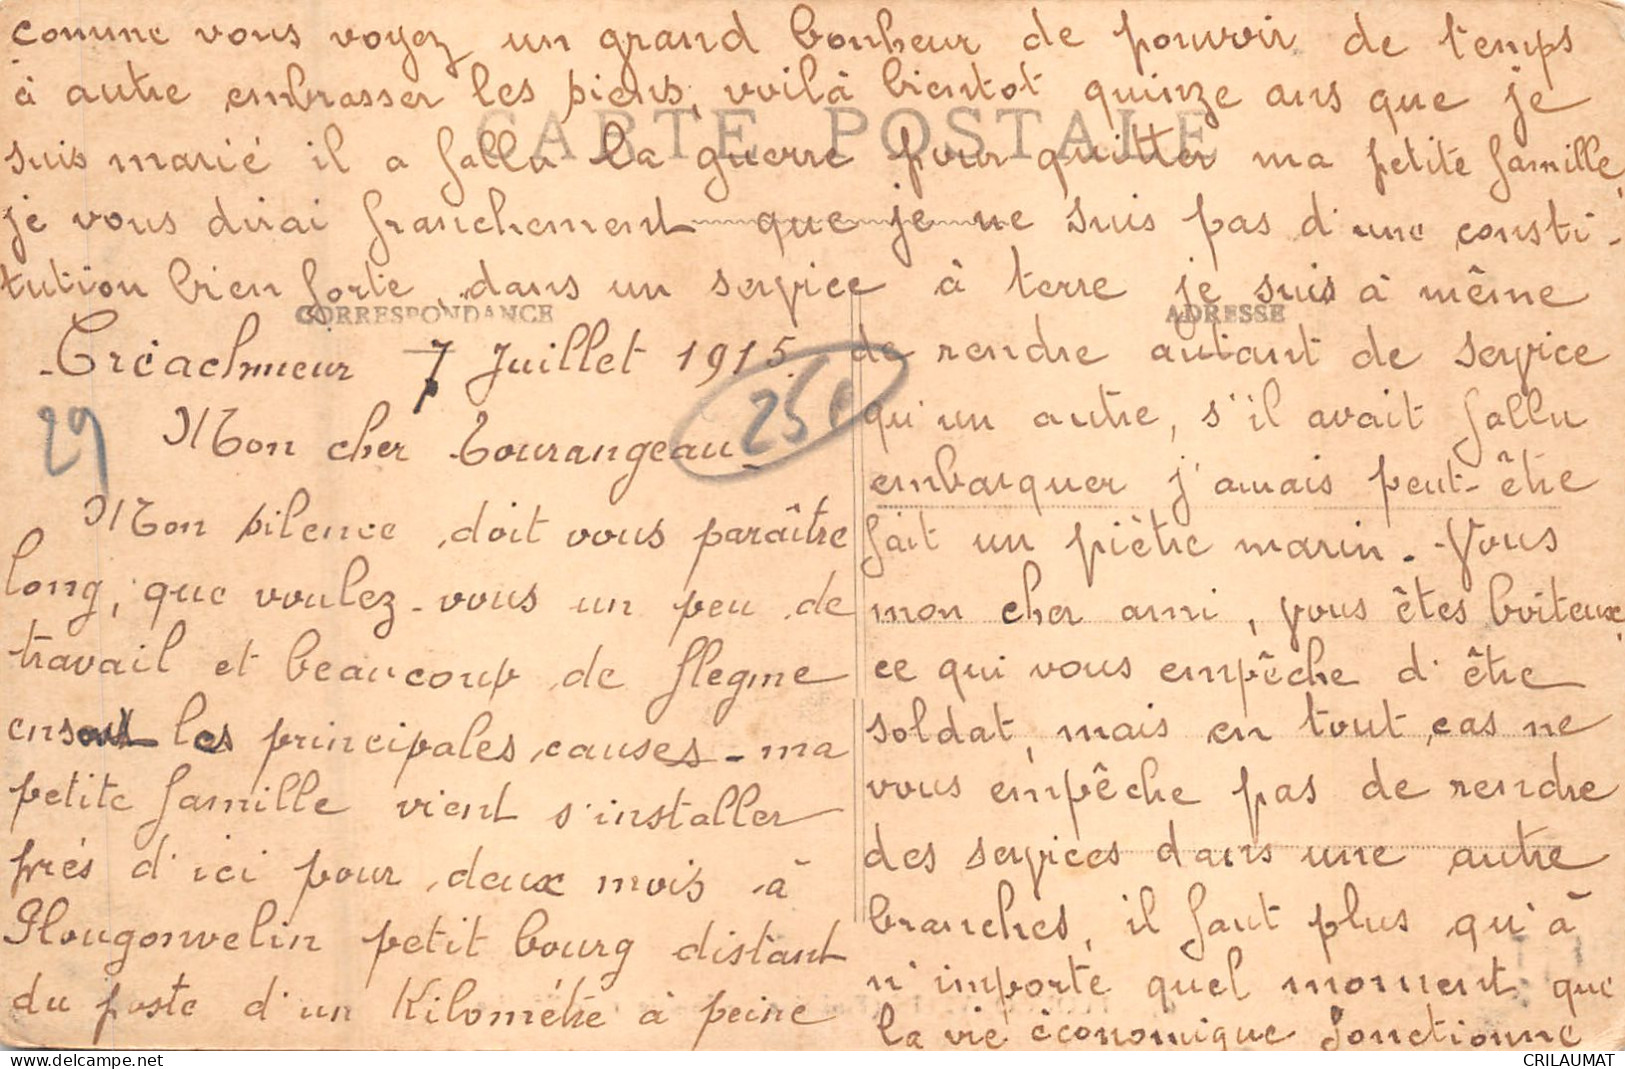 comme vous voyez un grand bonheur de pouvoir de temps
à autre embrasser les siens, voilà bientot quinze ans que je
CARTE POSTALE
suis marié il a fallu la guerre pour quitter ma petite famille,
je vous dirai franchement que je ne suis pas d'une consti-
tution bien forte, dans un service à terre je suis à même
CORRESPONDANCE
ADRESSE
Créachmeur 7 Juillet 1915.
25
29
Mon cher Tourangeau
Mon silence doit vous paraître
long, que voulez-vous un peu de
travail et beaucoup de flegme
en sont les principales causes - ma
petite famille vient s'installer
près d'ici pour deux mois à
Plougonvelin petit bourg distant
du poste d'un Kilomètre à peine
de rendre autant de service
qu'un autre, s'il avait fallu
embarquer j'amais peut-être
fait un piètre marin. - Vous
mon cher ami, vous êtes boiteux,
ce qui vous empêche d'être
soldat, mais en tout cas ne
vous empêche pas de rendre
des services dans une autre
branches, il faut plus qu'à
n'importe quel moment que
la vie économique fonctionne
delcampe.net
CRILAUMAT